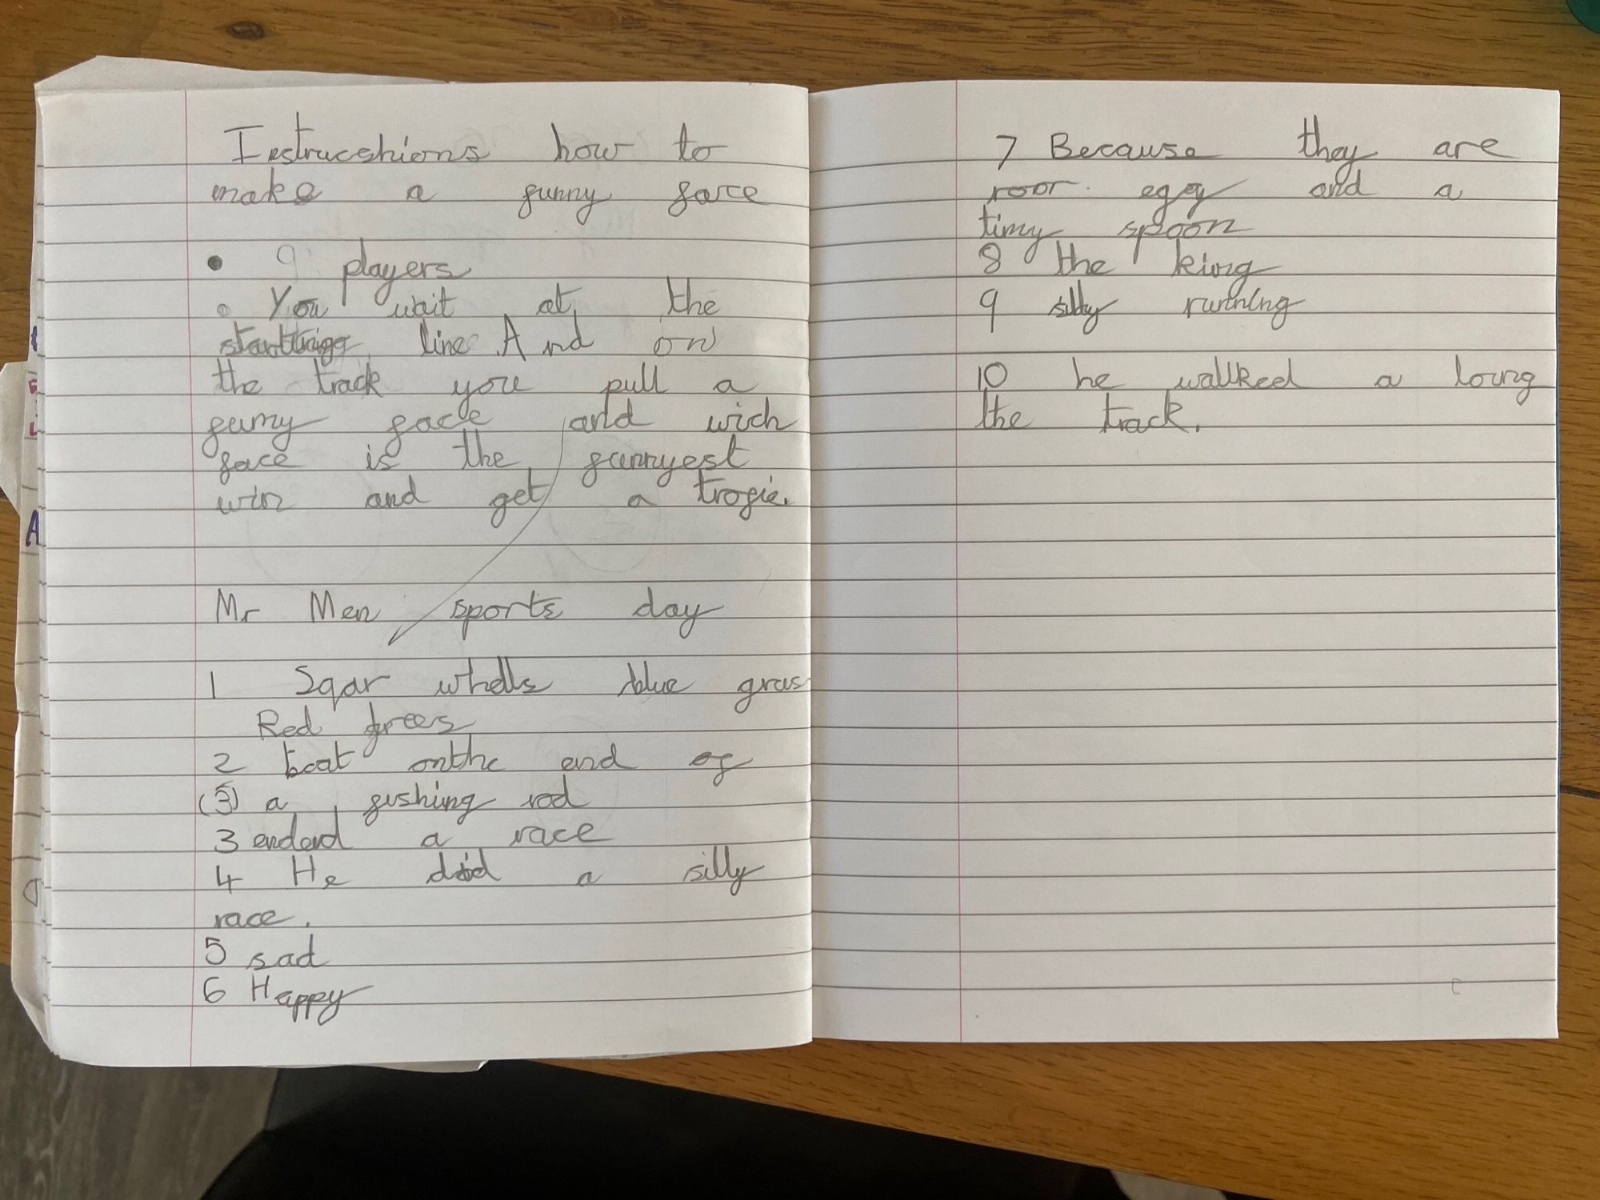 Instrucshions how to
make a funny face
9 players
You wait at the
startting line And on
the track you pull a
funny face and wich
face is the funnyest
win and get a trofie.
Mr Men sports day
1 Sqar whells blue gras
Red trees
2 boat onthe end of
(3) a fishing rod
3 endend a race
4 He did a silly
race.
5 sad
6 Happy
7 Because they are
roor egg and a
tiny spoon
8 the king
9 silly running
10 he wallked a loung
the track.